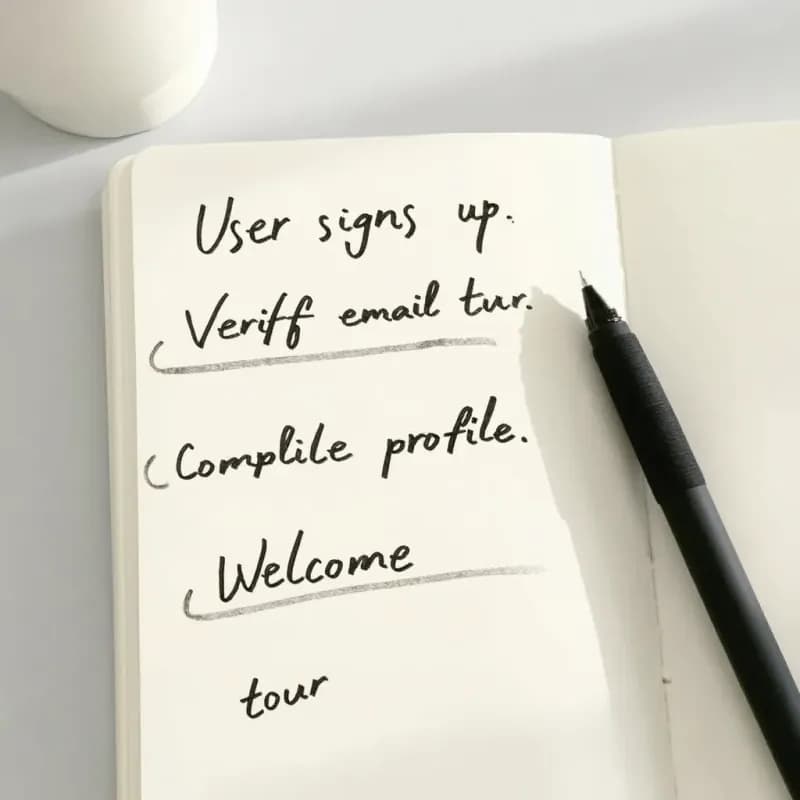 User signs up.
Veriff email tur.
Complile profile.
Welcome
tour